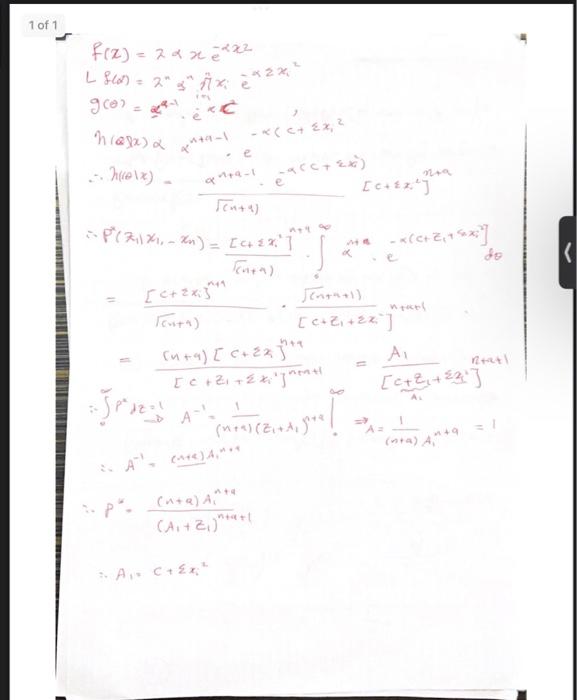 1 of 1
f(x) = 2 α x e^{-αx2}
L f(x) = 2^n α^n π x_i e^{-α Σ x_i^2}
g(θ) = α^{a-1} · e^{-αc} ,
h(α|x) α α^{n+a-1} · e^{-α(c+Σx_i^2}
∴ h(θ|x) = α^{n+a-1} · e^{-α(c+Σx_i^2)} / Γ(n+a) [c+Σx_i^2]^{n+a}
∴ P*(Z_1|x_1,-x_n) = [c+Σx_i^2]^{n+a} / Γ(n+a) · ∫_0^∞ α^{n+a} · e^{-α(c+Z_1+Σx_i^2]} dθ
= [c+Σx_i^2]^{n+a} / Γ(n+a) · Γ(n+a+1) / [c+Z_1+Σx_i^2]^{n+a+1}
= (n+a) [c+Σx_i^2]^{n+a} / [c+Z_1+Σx_i^2]^{n+a+1} = A_1 / [c+Z_1+Σx_i^2]^{n+a+1}
A_1
∴ ∫_0^∞ P* dz=1 ⇒ A^{-1} = 1 / (n+a)(Z_1+A_1)^{n+a} |_0^∞ ⇒ A = 1 / (n+a) A_1^{n+a} = 1
∴ A^{-1} = (n+a) A_1^{n+a}
∴ P* = (n+a) A_1^{n+a} / (A_1+Z_1)^{n+a+1}
∴ A_1 = c+Σx_i^2